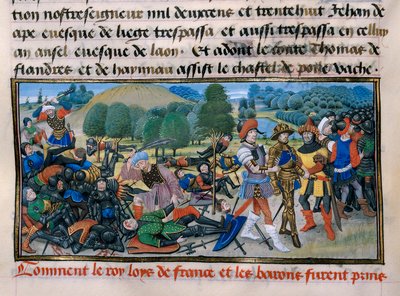 tion nostreseigneur mil deux cens et trentehuit Jehan de
ape euesque de liege trespassa et aussi trespassa en celluy
an ansel euesque de laon. Et adont le conte Thomas de
flandres et de haynnau assist le chastel de poile vache.
Comment le roy loys de france et les barons furent prins